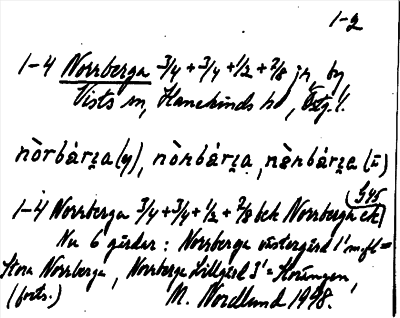 1-2
1-4 Norrberga 3/4 + 3/4 + 1/2 + 2/8 jr, by
Vists sn, Hanekinds hd, Östg. l.
nòrbárga(y), nòrbárga, nèrbárga(ü)
G45
1-4 Norrberga 3/4 + 3/4 + 1/2 + 2/8 bek Norrberga ek
Nu 6 gårdar: Norrberga västergård 1' m.fl =
Stora Norrberga, Norrberga Lillgård 3' =
(forts.) M. Nordlund 1948.